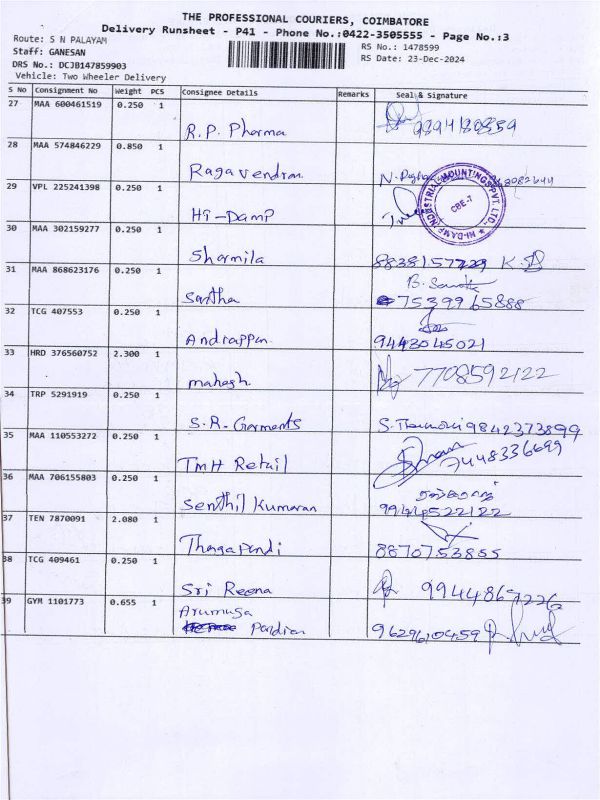 THE PROFESSIONAL COURIERS, COIMBATORE
Delivery Runsheet - P41 - Phone No.:0422-3505555 - Page No.:3
Route: S N PALAYAM
RS No.: 1478599
Staff: GANESAN
RS Date: 23-Dec-2024
DRS No.: DCJB147859903
Vehicle: Two Wheeler Delivery
S No Consignment No Weight PCS Consignee Details Remarks Seal & Signature
27 MAA 600461519 0.250 1
R.P. Pharma 9894180559
28 MAA 574846229 0.850 1
Ragavendran N.
29 VPL 225241398 0.250 1
Hi-Damp
HI-DAMP INDUSTRIAL MOUNTINGS PVT. LTD. ★
CBE-7
30 MAA 302159277 0.250 1
Sharmila 8838157729 K.
31 MAA 868623176 0.250 1
B.
Saritha 7539965888
32 TCG 407553 0.250 1
Andrappan 9443045021
33 HRD 376560752 2.300 1
mahesh 7708592122
34 TRP 5291919 0.250 1
S.R. Garments S. 9842373899
35 MAA 110553272 0.250 1
TMH Retail 7448336699
36 MAA 706155803 0.250 1
Senthil Kumaran 9944522122
37 TEN 7870091 2.080 1
Thagapandi 8870753855
38 TCG 409461 0.250 1
Sri Reena 9944867226
39 GYM 1101773 0.655 1
Arumuga
Pandian 9629610459